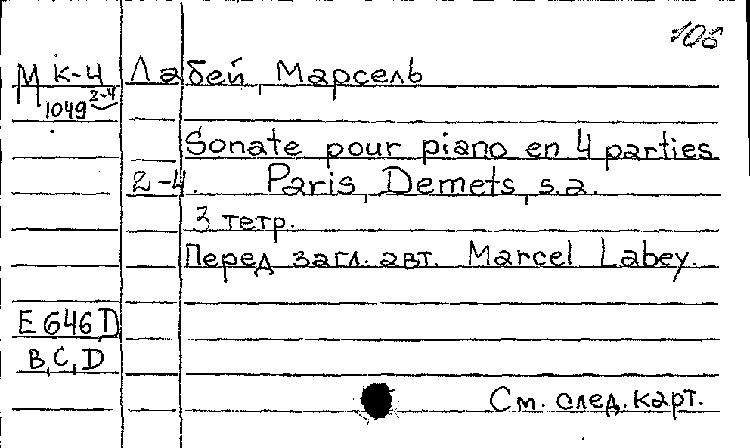 М к-4 Лабей, Марсель
1049 2-4
Sonate pour piano en 4 parties
2-4. Paris, Demets, s.a.
3 тетр.
Перед загл. авт. Marcel Labey.
E 646 D
B, C, D
См. след. карт.